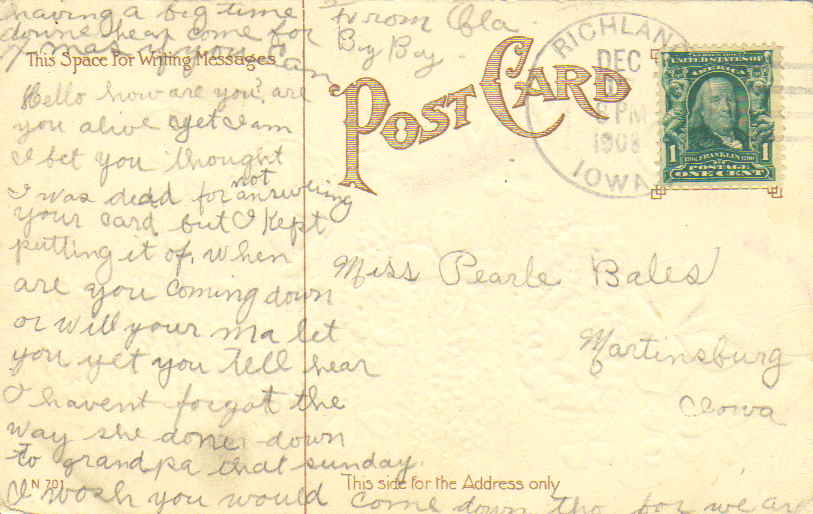 having a big time
downe hear come for
X mas if you can
From Ela
By By.
This Space For Writing Messages
POST CARD
RICHLAN
DEC
PM
1908
IOWA
UNITED STATES OF
AMERICA
FRANKLIN
1 1
POSTAGE
ONE CENT
Hello how are you, are
you alive yet I am
I bet you thought
I was dead for not answering
your card but I kept
putting it of, when
are you coming down
or will your ma let
you yet you Tell hear
I havent forgot the
way she done down
to grandpa that sunday.
I wosh you would come down tho for we are
Miss Pearle Bales
Martinsburg
Iowa
N 701
This side for the Address only